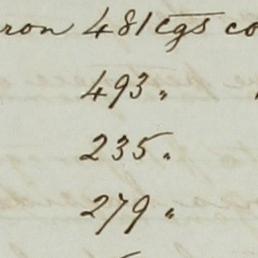 ron 481 cgs co
493 "
235 "
279 "